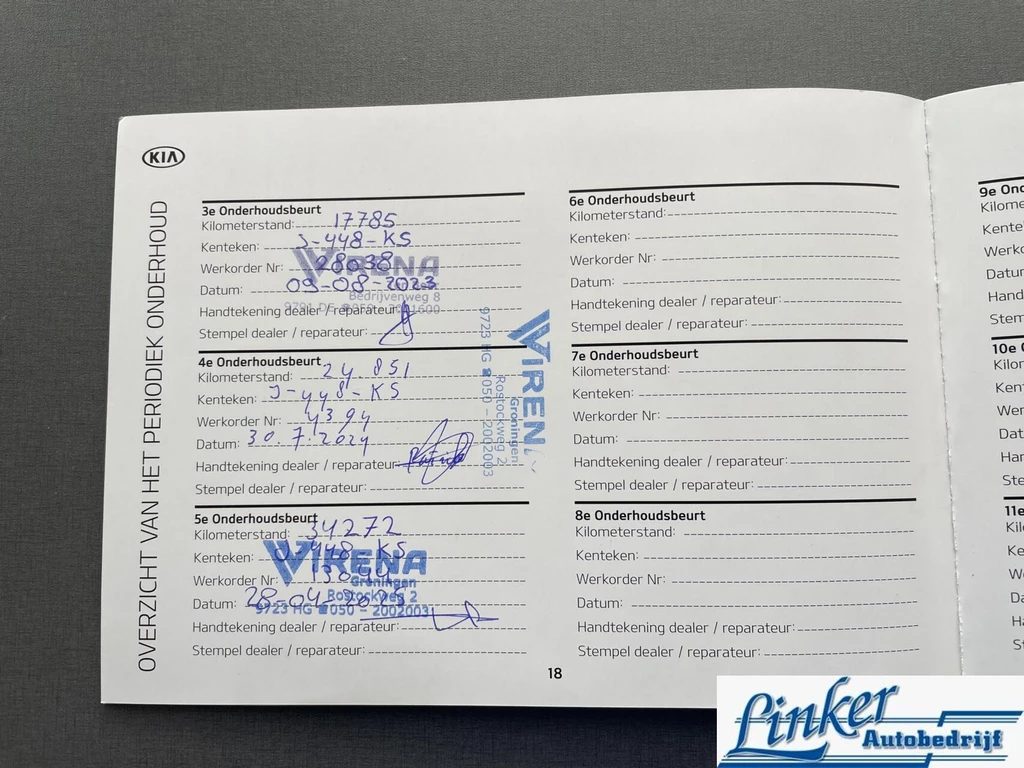 KIA
OVERZICHT VAN HET PERIODIEK ONDERHOUD
3e Onderhoudsbeurt
Kilometerstand: 17785
Kenteken: J-448-KS
Werkorder Nr: 28038
Datum: 09-08-2023
Handtekening dealer / reparateur:
Stempel dealer / reparateur:
VIRENA
Bedrijvenweg 8
4e Onderhoudsbeurt
Kilometerstand: 24 851
Kenteken: J-448-KS
Werkorder Nr: 4394
Datum: 30.7.2024
Handtekening dealer / reparateur:
Stempel dealer / reparateur:
VIREN
Groningen
Rostockweg 2
9723 HG ☎ 050 - 2002003
5e Onderhoudsbeurt
Kilometerstand: 34272
Kenteken: J-448-KS
Werkorder Nr: 13044
Datum: 28-04-2025
Handtekening dealer / reparateur:
Stempel dealer / reparateur:
VIRENA
Groningen
Rostockweg 2
9723 HG ☎ 050 - 2002003
6e Onderhoudsbeurt
Kilometerstand:
Kenteken:
Werkorder Nr:
Datum:
Handtekening dealer / reparateur:
Stempel dealer / reparateur:
7e Onderhoudsbeurt
Kilometerstand:
Kenteken:
Werkorder Nr:
Datum:
Handtekening dealer / reparateur:
Stempel dealer / reparateur:
8e Onderhoudsbeurt
Kilometerstand:
Kenteken:
Werkorder Nr:
Datum:
Handtekening dealer / reparateur:
Stempel dealer / reparateur:
18
9e Ond
Kilome
Kente
Werko
Datur
Hand
Stem
10e O
Kilor
Ken
Wer
Dat
Har
Ste
11e
Kil
Ke
W
Da
Ha
St
Linker
Autobedrijf